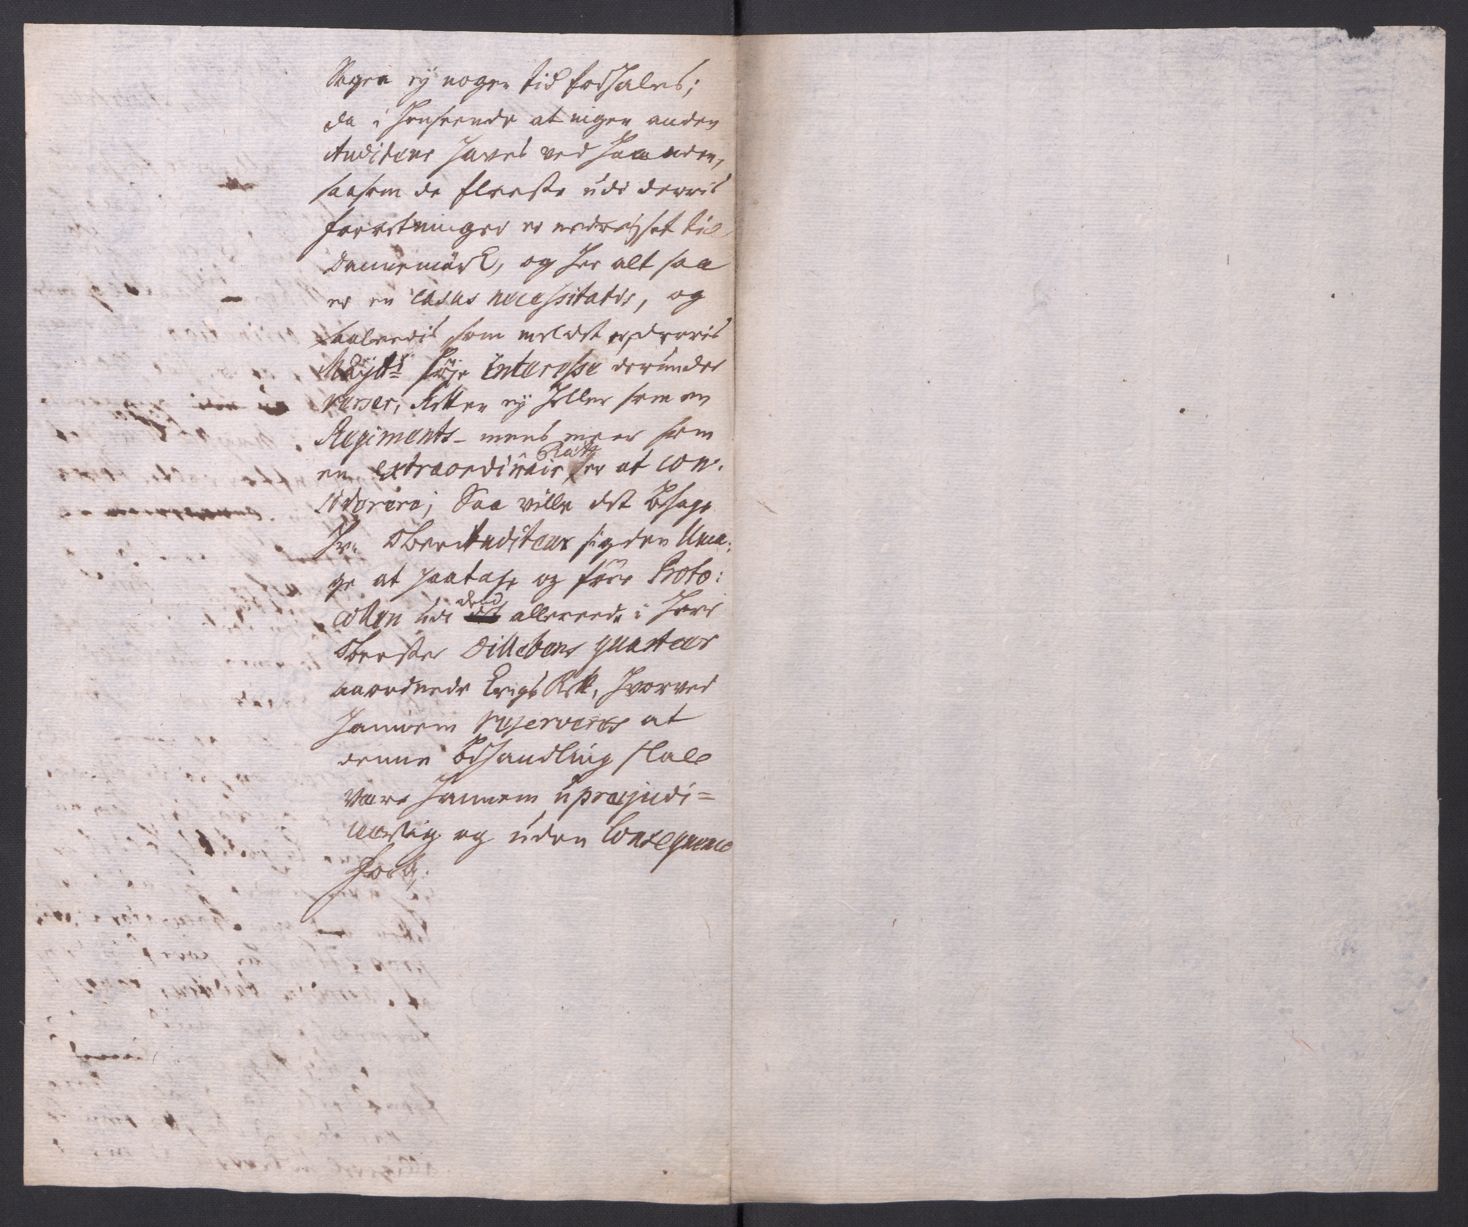 Sagen ey nogen tid forhales;
da i Henseende at ingen anden
Auditeur haves ved Haanden,
saasom de fleeste udi deres
forretninger er nedreyset til
Dannemark, og her alt saa
er en casus necessitatis, og
saaledis som meldt er, deris
Mayts høje Interesse derunder
verser, Retten ey heller som en
Regiments- mens meer som
en extraordinair Rætt er at con-
siderere; Saa ville det behage
Hr. OberAuditeur sig den Uma-
ge at paatage og føre Proto-
collen udi dend allereede i Herr
Oberster Dillebens quarteer
anordnede Krigs Rett, hvorved
hannem reserveres at
denne behandling skal
være hannem upræjudi-
cerlig og uden Consequence